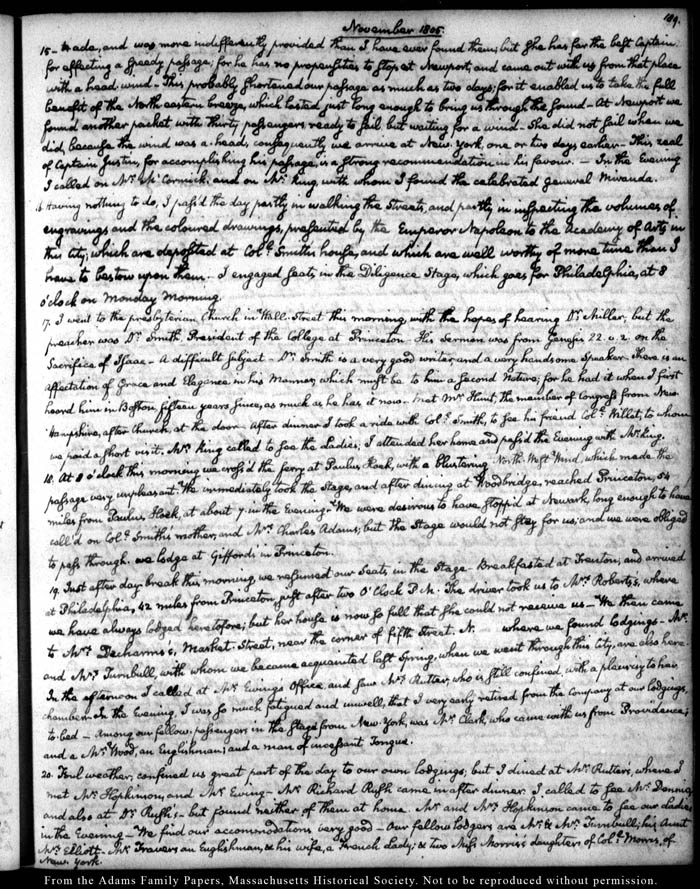 189.
November 1805.
15 - made, and was more indifferently provided than I have ever found them; but she has for the best Captain
for effecting a speedy passage; for he has no propensities to stop at Newport; and came out with us from that place
with a head wind - This probably shortened our passage as much as two days; for it enabled us to take the full
benefit of the North eastern breeze, which lasted just long enough to bring us through the sound - At Newport we
found another packet with thirty passengers ready to sail but waiting for a wind - She did not sail when we
did, because the wind was a-head, consequently we arrive at New-York, one or two days earlier - This zeal
of Captain Justin, for accomplishing his passage, is a strong recommendation in his favour. - In the Evening
I called on Mr. McCormick; and on Mr. King, with whom I found the celebrated general Miranda.
16. Having nothing to do, I pass'd the day partly in walking the Streets, and partly in inspecting the volumes of
engravings and the coloured drawings, presented by the Emperor Napoleon to the Academy of Arts, in
this city; which are deposited at Coll. Smith's house, and which are well worthy of more time than I
have to bestow upon them - I engaged seats, in the Diligence Stage, which goes for Philadelphia, at 8
o'clock on Monday Morning
17. I went to the presbyterian Church in Wall-Street this morning, with the hopes of hearing Dr. Miller; but the
preacher was Dr. Smith, President of the College at Princeton - His Sermon was from Genesis 22. v. 2. on the
Sacrifice of Isaac - A difficult subject - Dr. Smith is a very good writer, and a very handsome Speaker - There is an
affectation of Grace and Elegance in his Manner, which must be to him a second Nature; for he had it when I first
heard him in Boston, fifteen years since, as much as he has it now. Met Mr. Hunt, the member of Congress from New-
Hampshire, after Church, at the door - After dinner I took a ride with Coll. Smith, to see his friend Coll. Willet, to whom
we paid a short visit. Mrs. King called to see the Ladies; I attended her home and pass'd the Evening with Mr. King.
18. At 8 o'clock this morning we cross'd the ferry at Paulus Hook, with a blustering North West Wind, which made the
passage very unpleasant. We immediately took the Stage, and after dining at Woodbridge, reached Princeton, 54
miles from Paulus Hook, at about 7 in the Evening. We were desirous to have stopp'd at Newark, long enough to have
call'd on Coll. Smith's mother, and Mrs. Charles Adams; but the Stage would not stay for us, and we were obliged
to pass through. we lodge at Giffords in Princeton.
19. Just after day break this morning, we resumed our Seats in the Stage - Breakfasted at Trenton, and arrived
at Philadelphia, 42 miles from Princeton, just after two O'Clock P.M. The driver took us to Mrs. Roberts's, where
we have always lodged heretofore; but her house is now so full that she could not receive us - We then came
to Mrs. Decharms's, Market-Street, near the corner of fifth Street. N. where we found lodgings - Mr.
and Mrs. Turnbull, with whom we became acquainted last Spring, when we went through this City, are also here.
In the afternoon I called at Mr. Ewing's Office, and saw Mr. Rutter, who is still confined, with a pleurisy to his
chamber. In the Evening, I was so much fatigued and unwell, that I very early retired from the company at our lodgings,
to bed - Among our fellow-passengers in the Stage from New-York, was Mr. Clark, who came with us from Providence;
and a Mr. Wood, an Englishman; and a man of incessant Tongue.
20. Foul weather, confined us great part of the day to our own lodgings; but I dined at Mr. Rutter's, where I
met Mr. Hopkinson, and Mr. Ewing - Mr. Richard Rush came in after dinner. I called to see Mr. Dennie,
and also at Dr. Rush's - but found neither of them at home. Mr. and Mrs. Hopkinson came to see our ladies
in the Evening - We find our accommodations very good - Our fellow lodgers are Mr. & Mrs. Turnbull; his Aunt
Mrs. Elliott - Mr. Travers an Englishman, & his wife, a French Lady; & two Miss Morris's daughters of Coll. Morris, of
New York.
From the Adams Family Papers, Massachusetts Historical Society. Not to be reproduced without permission.